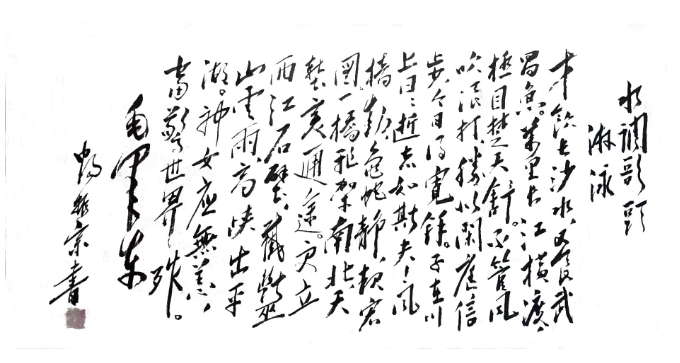 水調歌頭
游泳
才飲长沙水,又食武
昌魚。萬里长江横渡,
極目楚天舒。不管风
吹浪打,勝似闲庭信
步,今日得寬馀。子在川
上曰:逝者如斯夫!风
樯動,龟蛇静,起宏
图。一橋飛架南北,天
塹变通途。更立
西江石壁,截断巫
山雲雨,高峡出平
湖。神女应無恙,
當驚世界殊。
毛泽东
宗書